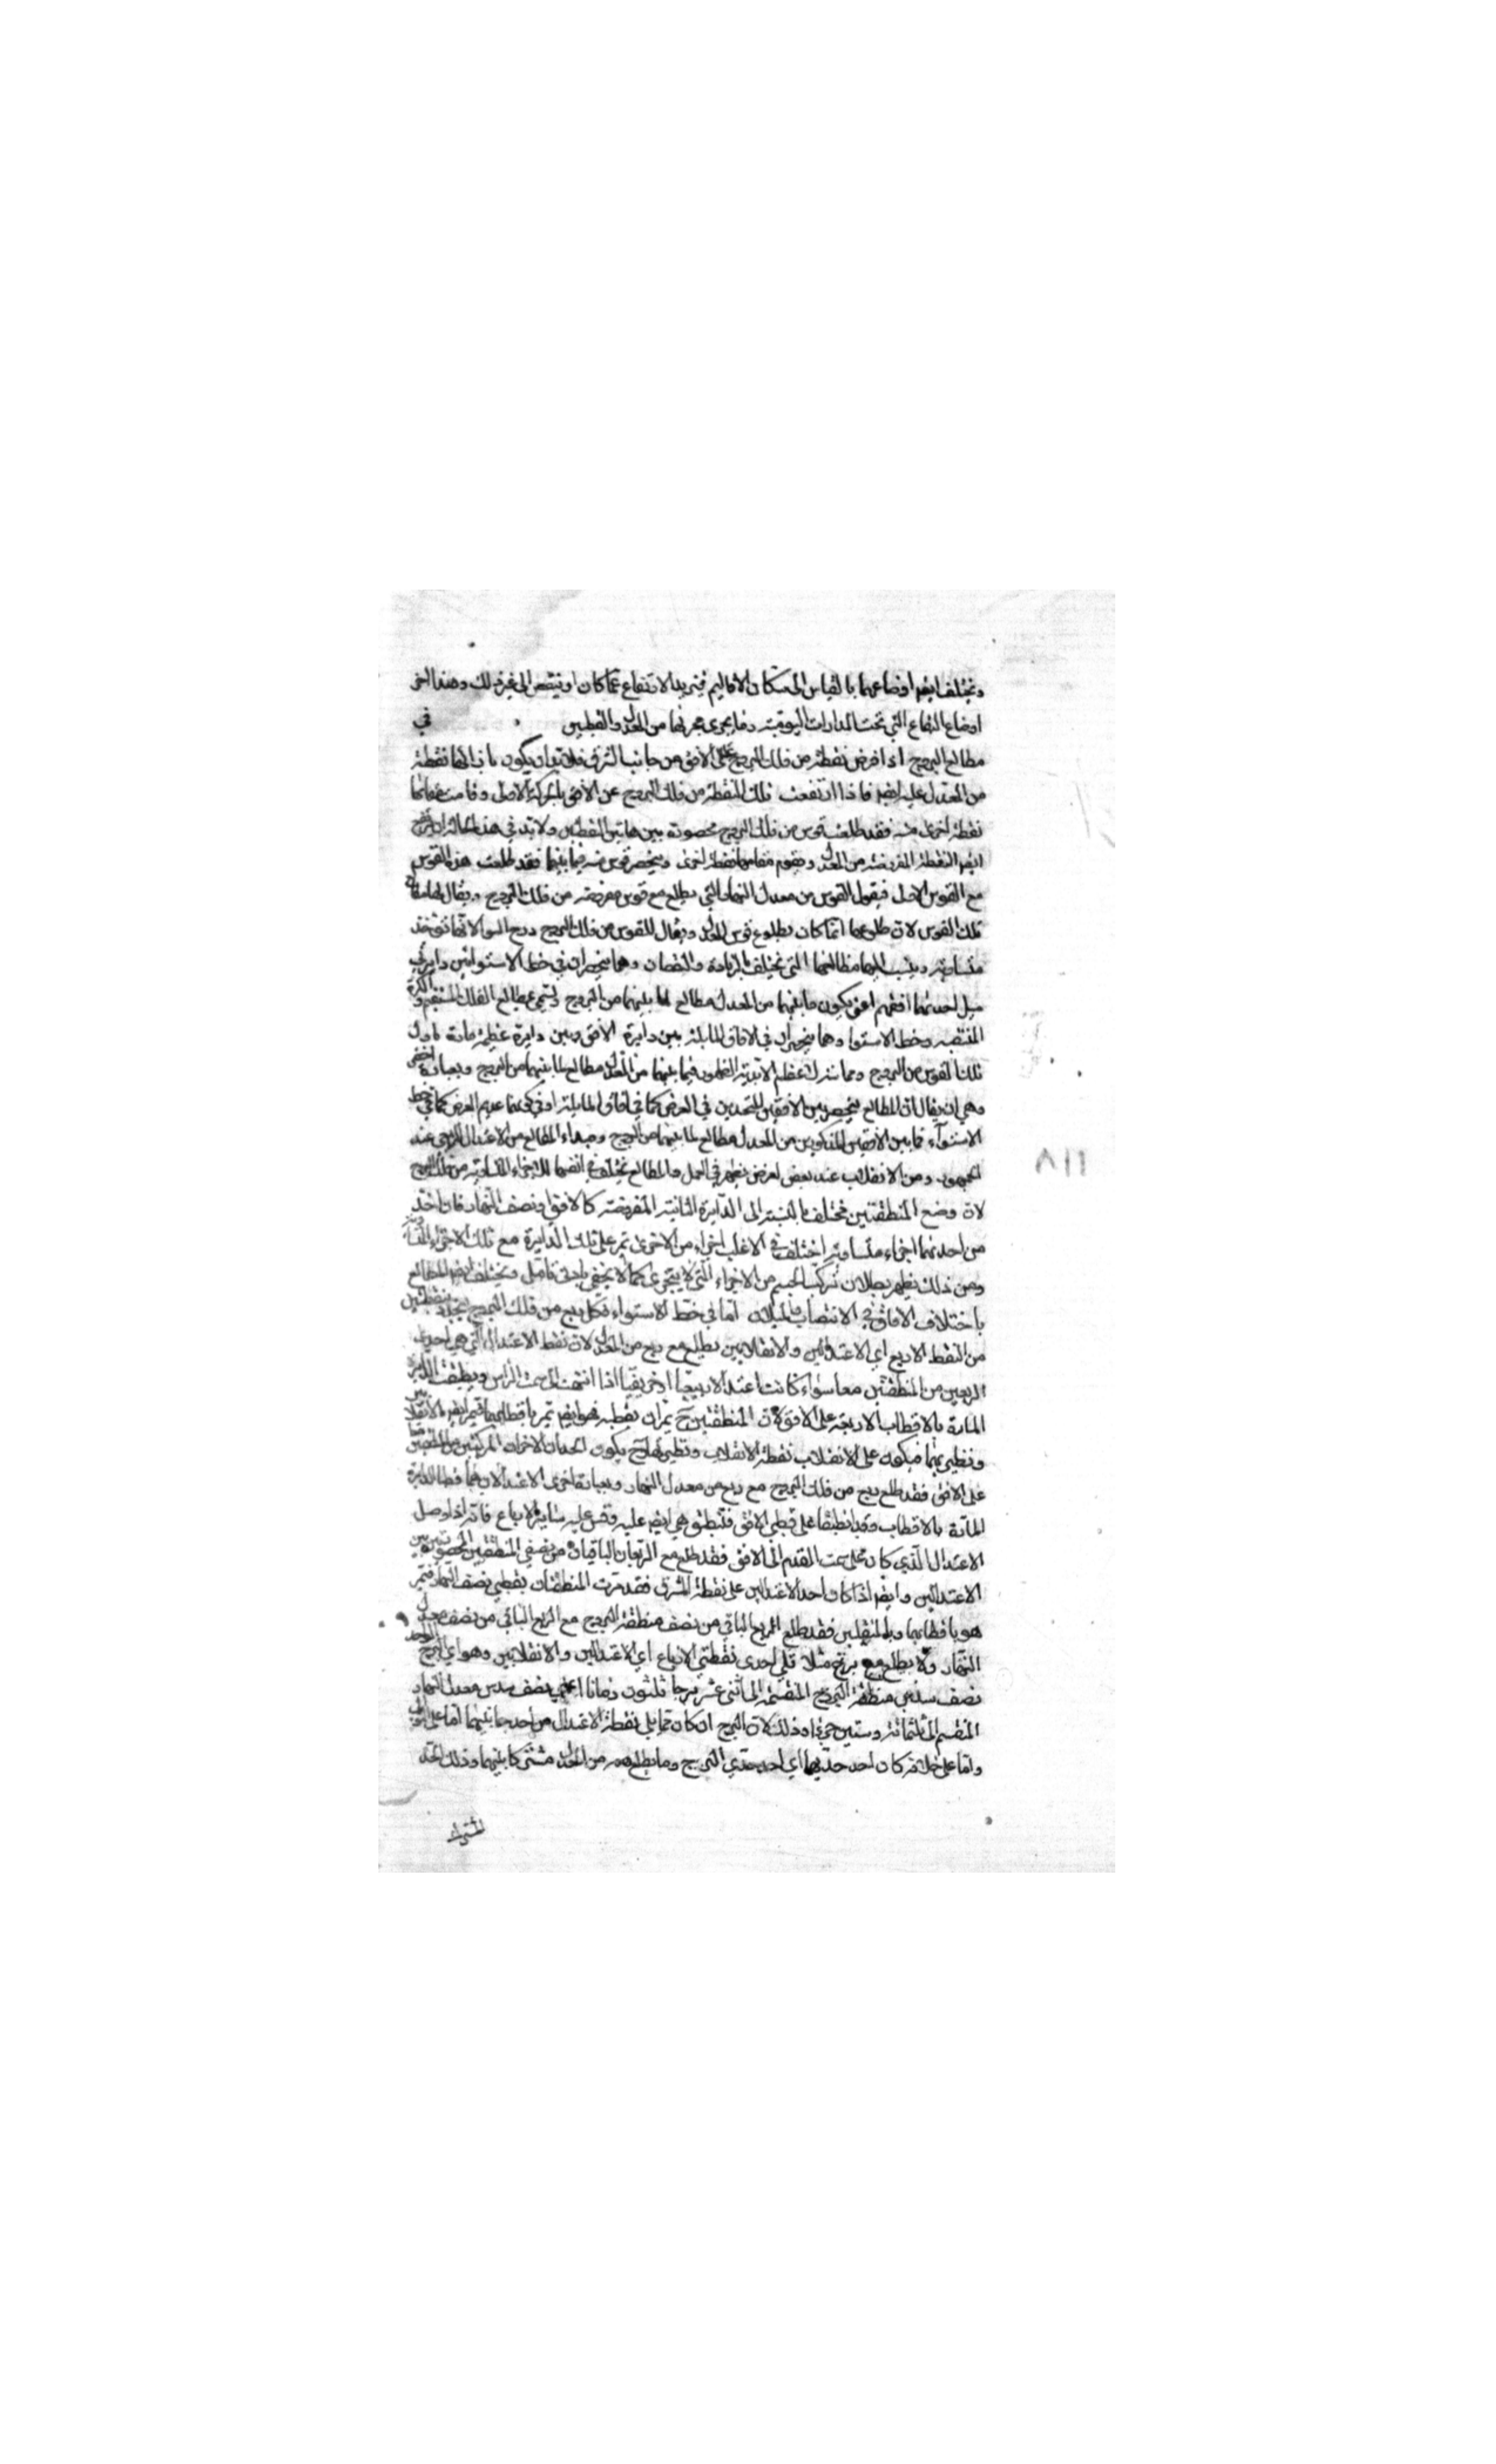 وتختلف ايضا اوضاعهما بالقياس الى سكان الاقاليم فيزيد الارتفاع عما كان او ينقص الى غير ذلك وهذا اخر
اوضاع البقاع التي تحت المدارات اليومية وما يجري مجريها من المعدل والقطبين في
مطالع البروج اذا فرض نقطة من فلك البروج على الافق من جانب الشرق فلا بد ان يكون بازائها نقطة
من المعدل عليه ايضا فاذا ارتفعت تلك النقطة من فلك البروج عن الافق بالحركة الاولى وقامت مقامها
نقطة اخرى منه فقد طلعت قوس من فلك البروج محصورة بين هاتين النقطتين ولا بد في هذه الحالة ان يرتفع
ايضا النقطة المفروضة من المعدل ويقوم مقامها نقطة اخرى وينحصر قوس منه فيما بينهما فقد طلعت هذه القوس
مع القوس الاولى فيقول القوس من معدل النهار التي يطلع مع قوس مفروضة من فلك البروج ويقال لها مطالع
تلك القوس لان طلوعها انما كان بطلوع قوس المعدل ويقال للقوس من فلك البروج درج السواء لانها تؤخذ
متساوية وينسب اليها مطالعها التي تختلف بالزيادة والنقصان وهما ينحصران في خط الاستواء بين دايرتي
ميل احدهما افقهم اعني يكون ما بينهما من المعدل مطالع لما بينهما من البروج وتسمى مطالع الفلك المستقيم والكرة
المنتصبة وخط الاستوا وهما ينحصران في الافاق المايلة بين دايرة الافق وبين دايرة عظيمة مارة باول
تلك القوس من البروج ومماسة لاعظم الابدية الظهور فيما بينهما من المعدل مطالع لما بينهما من البروج وبعبارة اخصر
وهي ان يقال ان المطالع ينحصر بين الافقين المتحدين في العرض كما في افاق المايلة او في كونهما عديم العرض كما في خط
الاستواء فما بين الافقين المذكورين من المعدل مطالع لما بينهما من البروج ومبداء المطالع من الاعتدال الربيعي عند
الجمهور ومن الانقلاب عند بعض لغرض يظهر في العمل والمطالع تختلف في انفسها للاجزاء المتساوية من فلك البروج
لان وضع المنطقتين مختلف بالنسبة الى الدايرة الثانية المفروضة كالافق او نصف النهار فان اخذ
من احدهما اجزاء متساوية اختلفت في الاغلب اجزاء من الاخرى تمر على تلك الدايرة مع تلك الاجزاء المتساوية
ومن ذلك يظهر بطلان تركب الجسم من الاجزاء التي لا يتجزى كما لا يخفى بادنى تامل ويختلف ايضا المطالع
باختلاف الافاق في الانتصاب والميلان اما في خط الاستواء فكل ربع من فلك البروج يتحدد بنقطتين
من النقط الاربع اي الاعتدالين والانقلابين يطلع مع ربع من المعدل لان نقط الاعتدال التي هي احد
الربعين من المنطقتين معا سواء كانت اعتدالا ربيعيا او خريفيا اذا انتهت الى سمت الراس وينطبق الدايرة
المارة بالاقطاب الاربعة على الافق لان المنطقتين ح تمران بقطبه فهو ايضا تمر باقطابهما فتمر ايضا بالانقلابين
ونظيريهما فيكون على الانقلاب نقطة الانقلاب ونظيرتها ح يكون الحدان الاخران المركبين من المنطقتين
على الافق فقد طلع ربع من فلك البروج مع ربع من معدل النهار وبعبارة اخرى الاعتدالان هما قطبا الدايرة
المارة بالاقطاب وقد انطبقا على قطبي الافق فتنطبق هي ايضا عليه وقس عليه ساير الارباع فانه اذا وصل
الاعتدال الذي كان على سمت القدم الى الافق فقد طلع مع الربعان الباقيان من نصفي المنطقتين المحصورتين بين
الاعتدالين وايضا اذا كان احد الاعتدالين على نقطة المشرق فقد مرت المنطقتان بقطبي نصف النهار فتمر
هو باقطابهما وبالمنقلبين فقد طلع الربع الباقي من نصف منطقة البروج مع الربع الباقي من نصف معدل
النهار ولا يطلع مع برج مثلا تلي احدى نقطتي الارباع اي الاعتدالين والانقلابين وهو اي البرج الواحد
نصف سدس منطقة البروج المنقسمة الى اثنى عشر برجا ثلثون زمانا اعني نصف سدس معدل النهار
المنقسم الى ثلثمائة وستين جزءا وذلك لان البرج ان كان مما يلي نقطة الاعتدال من احد جانبيها اما على التوالي
واما على خلافه كان احد حديها اي احد حدي البرج وما يطلع معه من المعدل مشتركا بينهما وذلك الحد
المشترك
١١٨